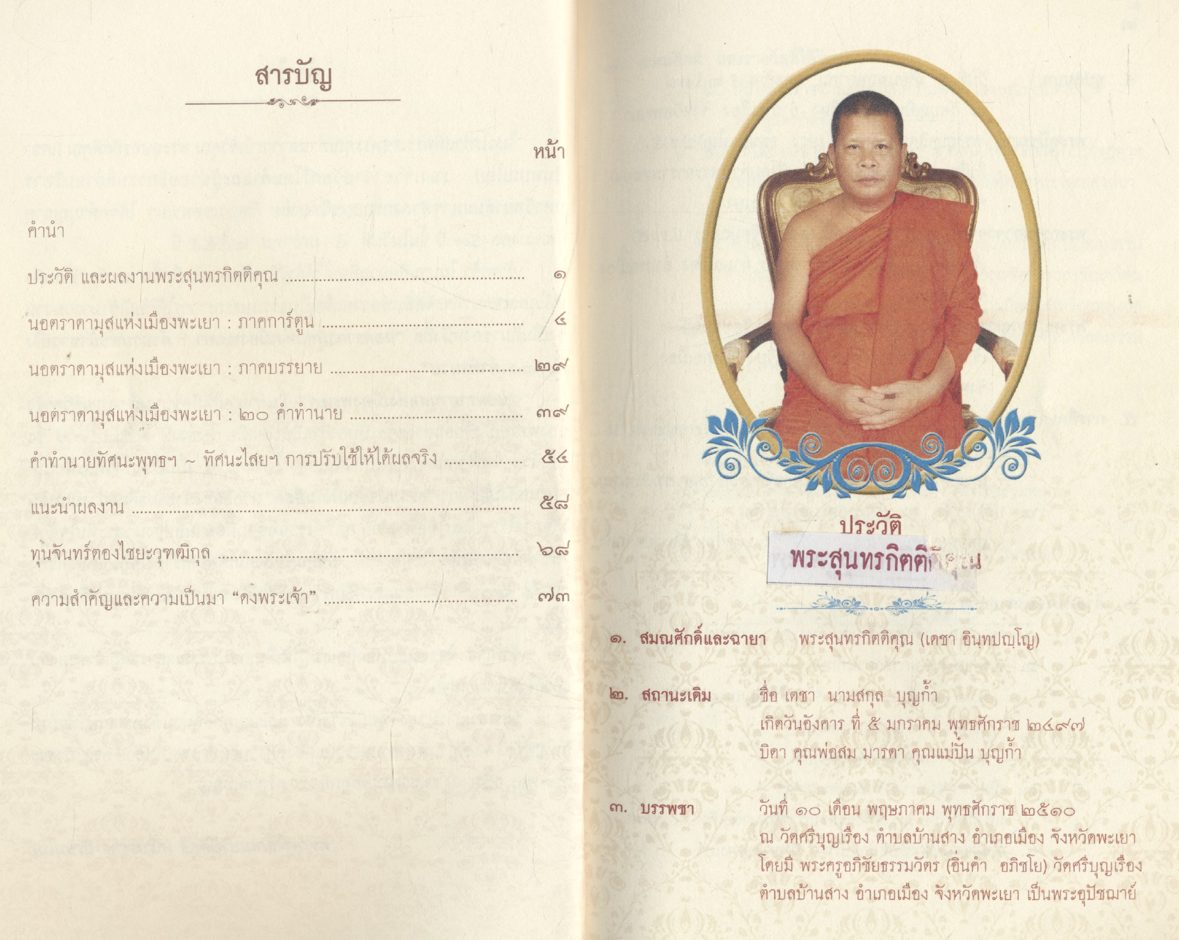 สารบัญ
หน้า
คำนำ
ประวัติ และผลงานพระสุนทรกิตติคุณ ๑
นอตราดามุสแห่งเมืองพะเยา : ภาคการ์ตูน ๔
นอตราดามุสแห่งเมืองพะเยา : ภาคบรรยาย ๒๙
นอตราดามุสแห่งเมืองพะเยา : ๒๐ คำทำนาย ๓๙
คำทำนายทัศนะพุทธฯ ~ ทัศนะไสยฯ การปรับใช้ให้ได้ผลจริง ๕๔
แนะนำผลงาน ๕๘
ทุนจันทร์ตองไชยะวุฑฒิกุล ๖๘
ความสำคัญและความเป็นมา “ดงพระเจ้า” ๗๓
ประวัติ
พระสุนทรกิตติคุณ
๑. สมณศักดิ์และฉายา พระสุนทรกิตติคุณ (เดชา อินฺทปญฺโญ)
๒. สถานะเดิม ชื่อ เดชา นามสกุล บุญก้ำ
เกิดวันอังคาร ที่ ๕ มกราคม พุทธศักราช ๒๔๙๗
บิดา คุณพ่อสม มารดา คุณแม่ปั๋น บุญก้ำ
๓. บรรพชา วันที่ ๑๐ เดือน พฤษภาคม พุทธศักราช ๒๕๑๐
ณ วัดศรีบุญเรือง ตำบลบ้านสาง อำเภอเมือง จังหวัดพะเยา
โดยมี พระครูอภิชัยธรรมวัตร (อิ่นคำ อภิชโย) วัดศรีบุญเรือง
ตำบลบ้านสาง อำเภอเมือง จังหวัดพะเยา เป็นพระอุปัชฌาย์